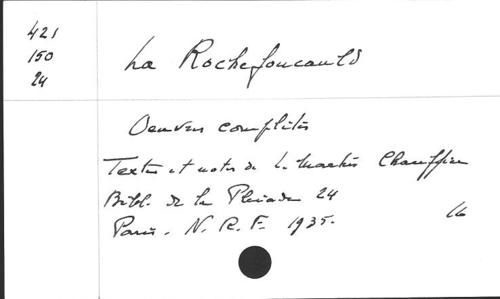 421
150
24
La Rochefoucauld
Oeuvres complètes
Textes et notes de L. Martin Chauffier
Bibl. de la Pleiade 24
Paris. N. R. F. 1935.
16